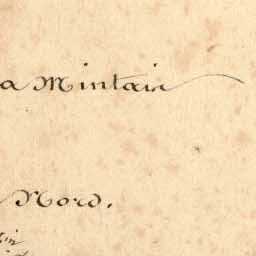 a Mintair
Nord.